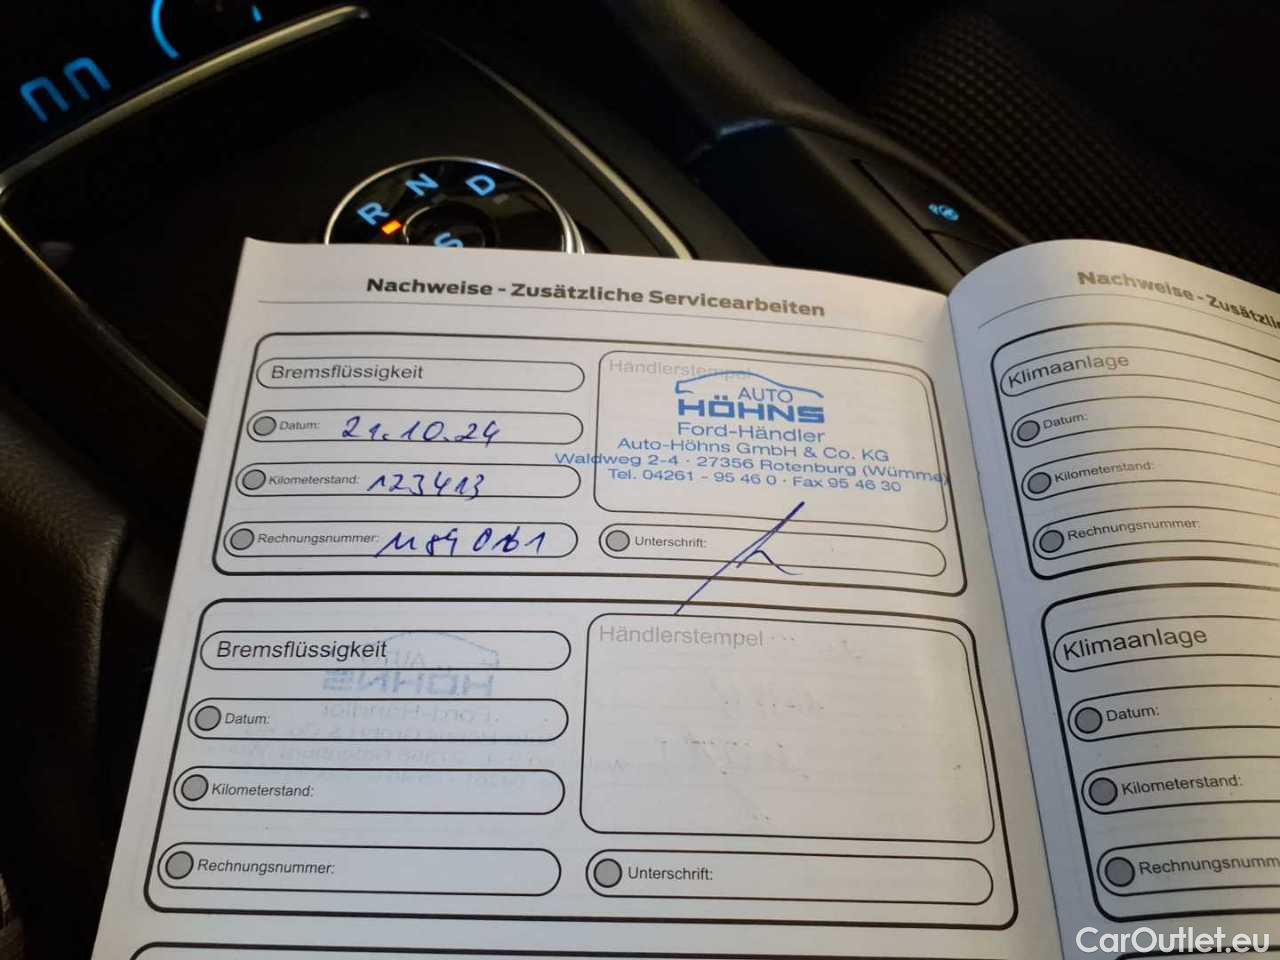 R N D
S
Nachweise - Zusätzliche Servicearbeiten
Bremsflüssigkeit
Datum: 21.10.24
Kilometerstand: 123413
Rechnungsnummer:
Händlerstempel
AUTO
HÖHNS
Ford-Händler
Auto-Höhns GmbH & Co. KG
Waldweg 2-4 · 27356 Rotenburg (Wümme)
Tel. 04261 - 95 46 0 · Fax 95 46 30
Unterschrift:
Bremsflüssigkeit
Datum:
Kilometerstand:
Rechnungsnummer:
Händlerstempel
Unterschrift:
Nachweise - Zusätzli
Klimaanlage
Datum:
Kilometerstand:
Rechnungsnummer:
Klimaanlage
Datum:
Kilometerstand:
Rechnungsnumm
CarOutlet.eu